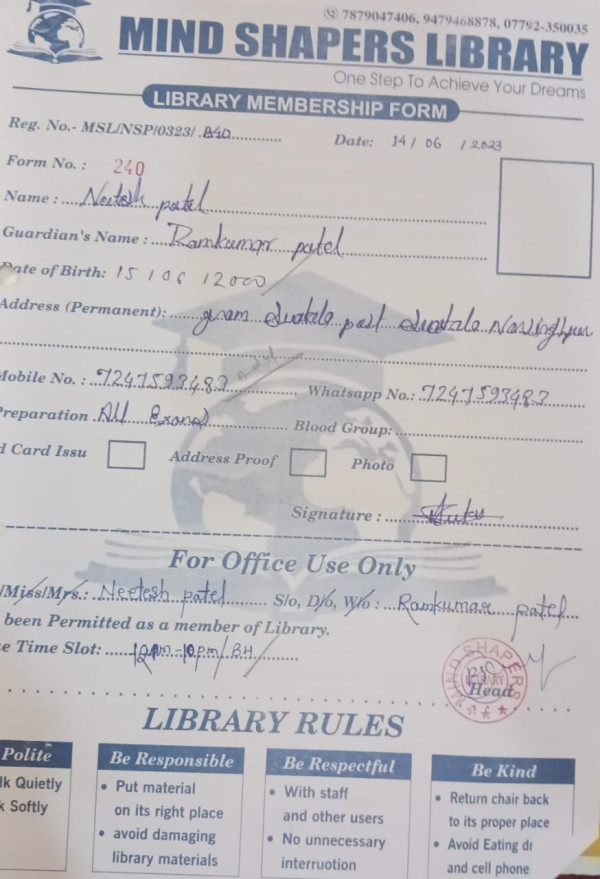 7879047406, 9479468878, 07792-350035
MIND SHAPERS LIBRARY
One Step To Achieve Your Dreams
LIBRARY MEMBERSHIP FORM
Reg. No.- MSL/NSP/0323/.840............
Date: 14 / 06 / 2023
Form No. : 240
Name : ....Neetesh patel
Guardian's Name : ...Ramkumar patel
Date of Birth: 15 / 06 / 2000
Address (Permanent):......gram ... post ... Narsinghpur
Mobile No. : .7247593483
Whatsapp No.: .7247593483
Preparation .All Exams
Blood Group:
d Card Issu
Address Proof
Photo
Signature :
For Office Use Only
/Miss/Mrs.: .Neetesh patel......... S/o, D/o, W/o : ..Ramkumar patel...
been Permitted as a member of Library.
e Time Slot: .....12pm-10pm/8H
MIND SHAPERS
LIBRARY
Head
LIBRARY RULES
Polite
lk Quietly
k Softly
Be Responsible
• Put material
on its right place
• avoid damaging
library materials
Be Respectful
• With staff
and other users
• No unnecessary
interruotion
Be Kind
• Return chair back
to its proper place
• Avoid Eating dr
and cell phone